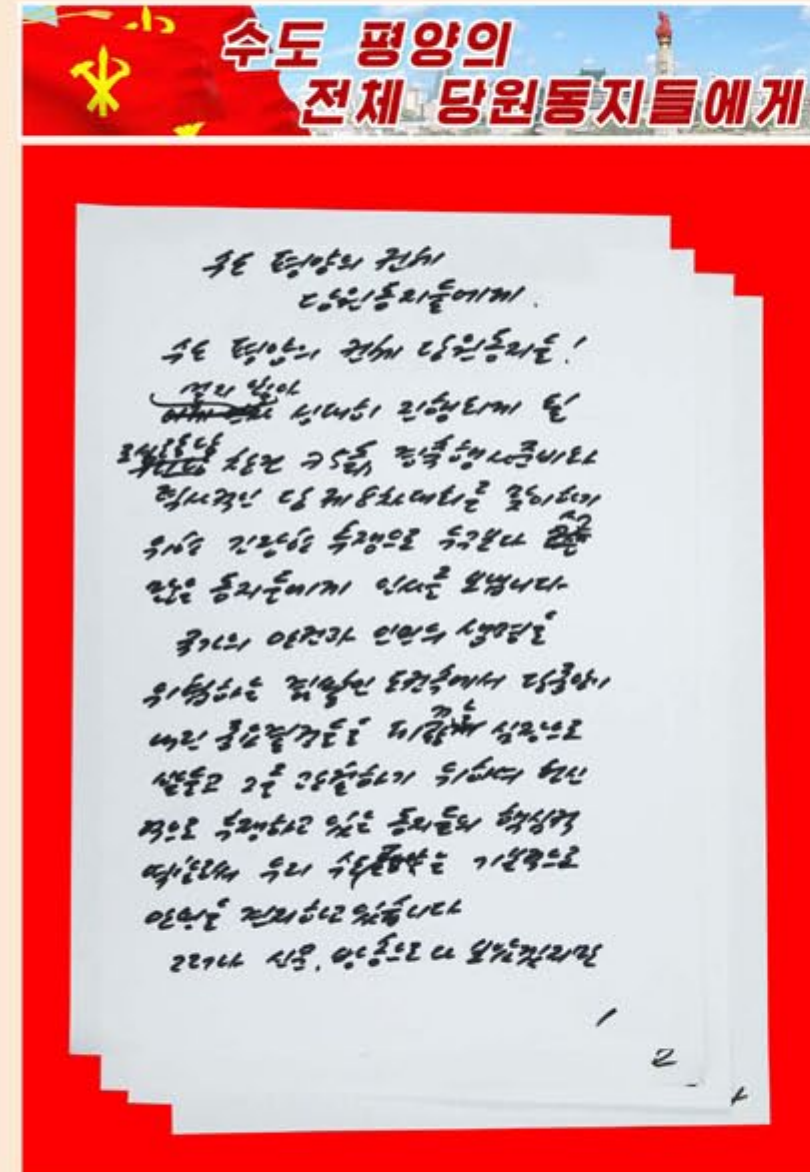 수도 평양의
전체 당원동지들에게
수도 평양의 전체
당원동지들에게.
수도 평양의 전체 당원동지들!
성대히 진행되게 될
당창건 75돐 경축행사준비와
력사적인 당 제8차대회를 맞이하기
위한 긴장한 투쟁으로 누구보다
많은 동지들에게 인사를 보냅니다.
국가의 안전과 인민의 생명을
위협하는 도전속에서 당중앙이
내린 중요결정들을 심장으로
받들고 그를 관철하기 위하여 헌신
적으로 투쟁하고 있는 동지들의 핵심적
역할로하여 우리 수도는 기본적으로
안정을 견지하고있습니다
그러나 신문, 방송으로 다 보았겠지만
1
2